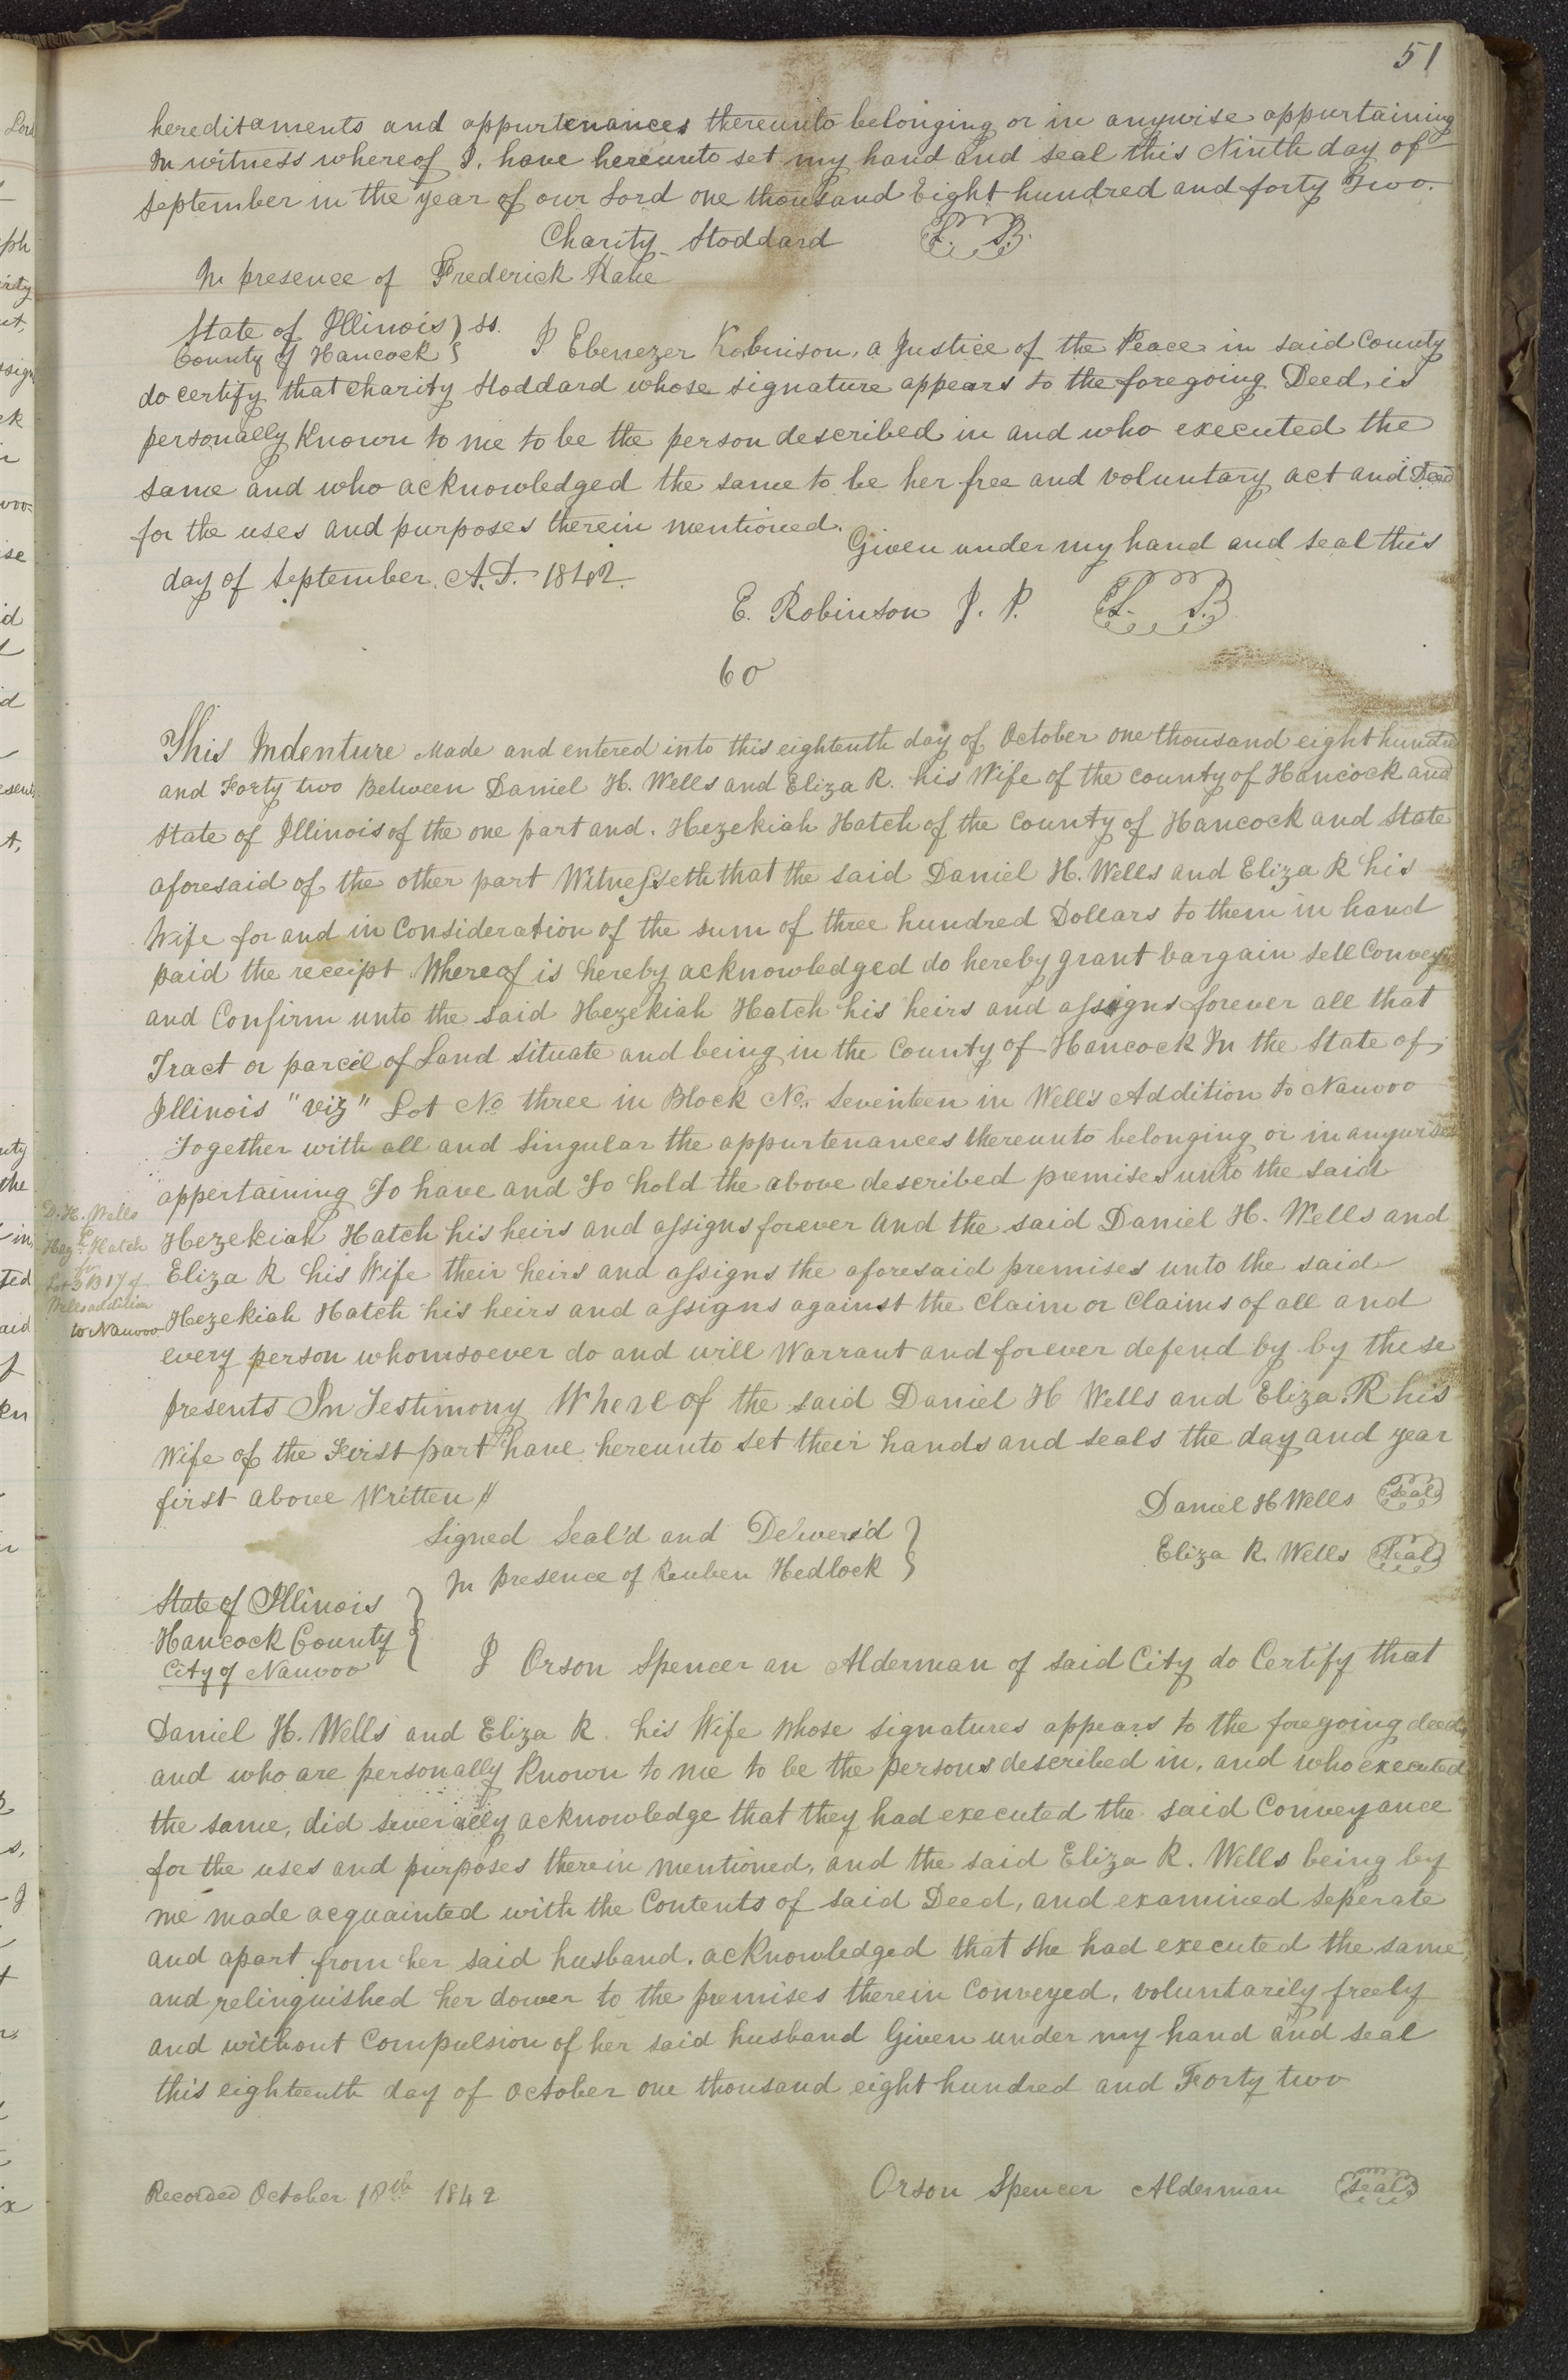 51
hereditaments and appurtenances thereunto belonging or in anywise appurtaining
In witness whereof I, have hereunto set my hand and seal this Ninth day of
September in the year of our Lord one thousand Eight hundred and forty Two.
Charity Stoddard L. S.
In presence of Frederick Kane
State of Illinois } ss.
County of Hancock } I Ebenezer Robinson, a Justice of the Peace in said County
do certify that Charity Stoddard whose signature appears to the foregoing Deed, is
personally Known to me to be the person described in and who executed the
same and who acknowledged the same to be her free and voluntary act and Deed
for the uses and purposes therein mentioned. Given under my hand and seal this
day of September A.D. 1842.
E. Robinson J. P. L. S.
60
This Indenture Made and entered into this eightenth day of October one thousand eight hundred
and Forty two Between Daniel H. Wells and Eliza R. his Wife of the county of Hancock and
State of Illinois of the one part and. Hezekiah Hatch of the County of Hancock and State
aforesaid of the other part Witnesseth that the said Daniel H. Wells and Eliza R his
Wife for and in Consideration of the sum of three hundred Dollars to them in hand
paid the receipt Whereof is hereby acknowledged do hereby grant bargain sell Convey
and Confirm unto the said Hezekiah Hatch his heirs and assigns forever all that
Tract or parcel of Land situate and being in the County of Hancock In the State of
Illinois "viz" Lot No three in Block No. Seventeen in Wells Addition to Nauvoo
Together with all and Singular the appurtenances thereunto belonging or in anywise
appertaining To have and To hold the above described premises unto the said
D. H. Wells
to
Hezh. Hatch
for
Lot 3 B 17 of
Wells addition
to Nauvoo
Hezekiah Hatch his heirs and assigns forever And the said Daniel H. Wells and
Eliza R his Wife their heirs and assigns the aforesaid premises unto the said
Hezekiah Hatch his heirs and assigns against the Claim or Claims of all and
every person whomsoever do and will Warrant and forever defend by by these
presents In Testimony Whereof the said Daniel H Wells and Eliza. R his
Wife of the First part have hereunto set their hands and seals the day and year
first above Written //
Daniel H Wells Seal
Signed Seal'd and Deliver'd }
Eliza R. Wells Seal
In presence of Reuben Hedlock }
State of Illinois }
Hancock County }
City of Nauvoo } I Orson Spencer an Alderman of said City do Certify that
Daniel H. Wells and Eliza R. his Wife whose signatures appears to the foregoing deed,
and who are personally Known to me to be the persons described in, and who executed
the same, did severally acknowledge that they had executed the said Conveyance
for the uses and purposes therein mentioned, and the said Eliza R. Wells being by
me made acquainted with the Contents of said Deed, and examined seperate
and apart from her said husband. acknowledged that she had executed the same,
and relinquished her dower to the premises therein Conveyed, voluntarily freely
and without Compulsion of her said husband Given under my hand and seal
this eighteenth day of October one thousand eight hundred and Forty two
Recorded October 18th 1842
Orson Spencer Alderman Seal